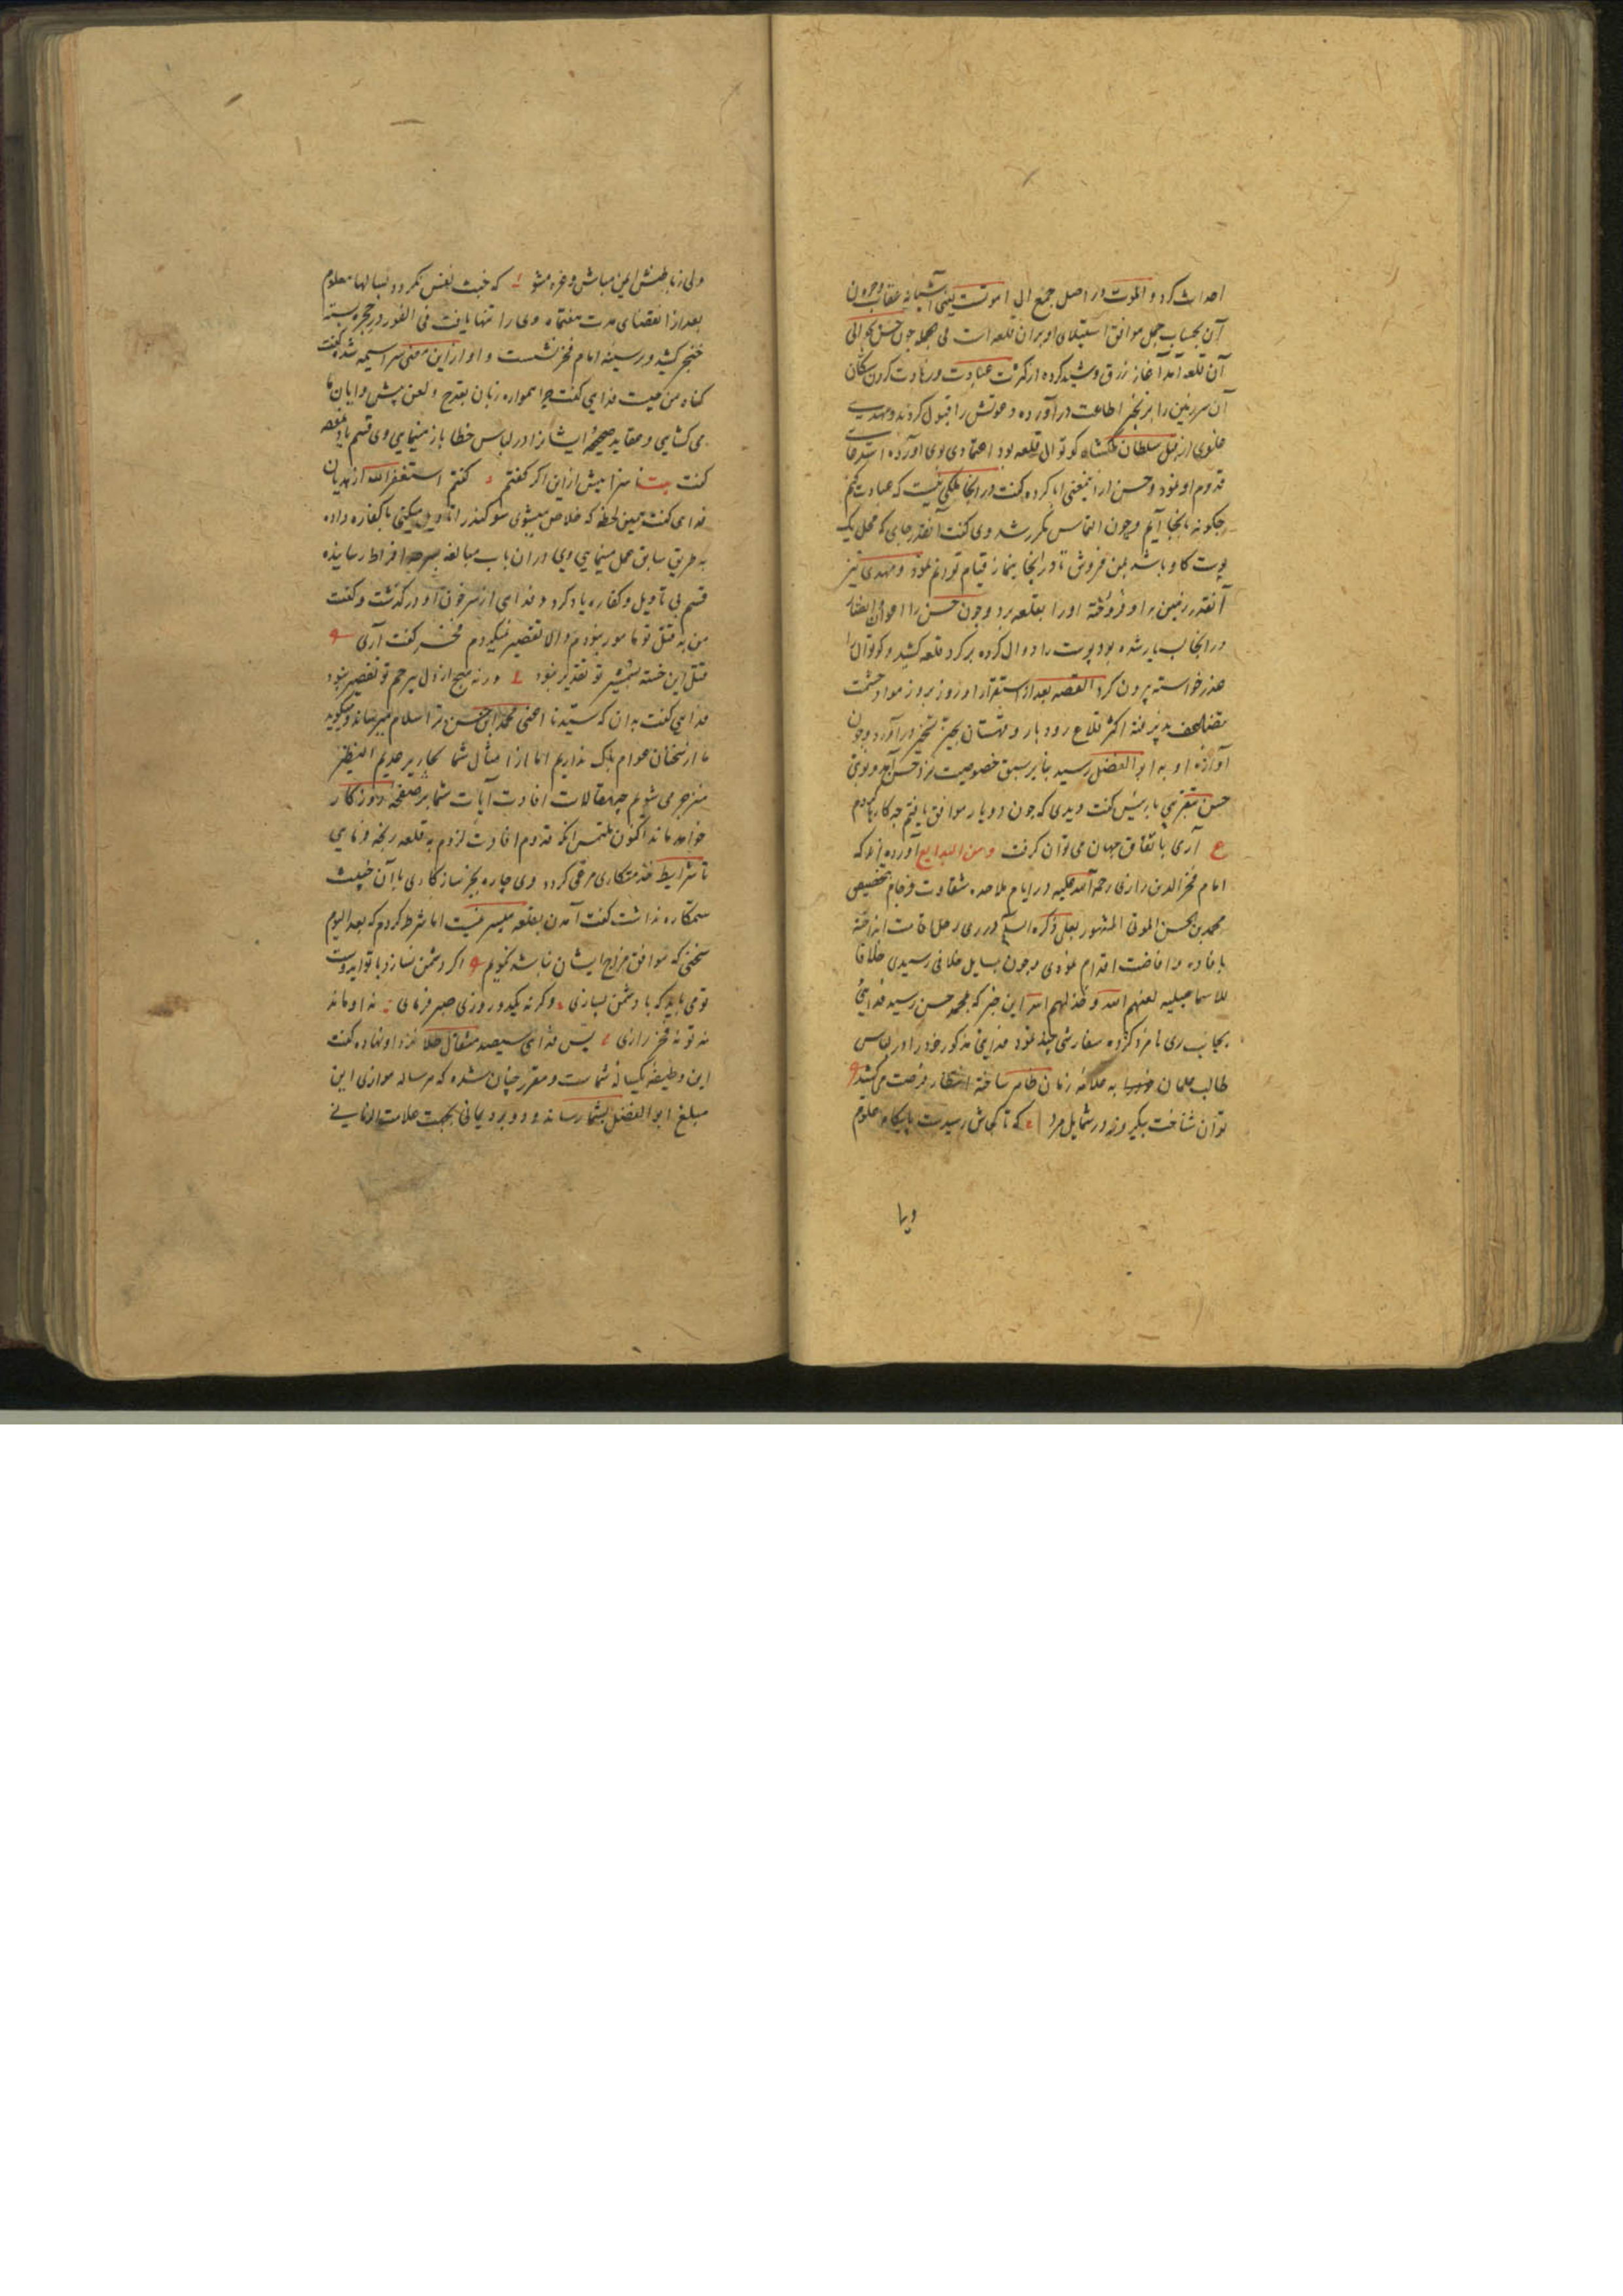 احداث کرد و الموت در اصل جمع الی اموتست یعنی آشیانه عقاب و حروف
آن بحساب جمل موافق استیلای او بران قلعه است فی جمله چون حسن بحوالی
آن قلعه آمد آغاز زرق و شید کرده از کثرت عبادت و زهادت کردن سکان
آن سرزمین را بزنجیر اطاعت درآورده دعوتش را قبول کردند و مهدی
علوی از قبل سلطان ملکشاه کوتوال قلعه بود اعتمادی بوی آورده استدعای
قدوم او نمود و حسن از اینمعنی ابا کرده گفت در انجا ملکی نیست که عبادت کنم
چکونه بانجا آیم و چون التماس مکرر شد وی گفت آنقدر جای که محل یک
پوست کاو باشد بمن فروش تا در انجا بنماز قیام توانم نمود و مهدی نیز
آنقدر زمین باو فروخته اورا بقلعه برد و چون حسن را اعوان و انصار
در انجا بسیار شده بود پوست را دوال کرده بر کرد قلعه کشید و کوتوال را
عذر خواسته بیرون کرد القصه بعد از استقرار او روز بروز مواد حشمت
تضاعف پذیرفته اکثر قلاع رودبار و قهستان بحیز تسخیر درآورد و چون
آوازه او به ابو الفضل رسید بنابر سبق خصوصیت نزد حسن آمد و نوبتی
حسن بتقریبی با رئیس گفت دیدی که چون دو یار موافق یافتم چه کارها کردم
ع آری باتفاق جهان می توان گرفت ومن البدایع آورده اند که
امام فخر الدین رازی رحمة الله علیه در ایام ملاحده شقاوت فرجام بتخصیص
محمد بن حسن الموتی المشهور بعلی ذکره السلام در ری رحل اقامت انداخته
بافاده و افاضت اقدام نمودی و چون بمسایل خلافی رسیدی خلافا
للاسماعیلیه لعنهم الله و خذلهم الله این خبر که بمحمد حسن رسید فدایئ
بجانب ری نامزد کرده سفارشی چند نمود فدایئ مذکور خود را در لباس
طالب علمان به علامه زمان ظاهر ساخته انتظار فرصت می کشید
توان شناخت بیکروز در شمایل مرد که تا کجاش رسیدست پایکاه علوم
ولی
ولی ز باطنش ایمن مباش و غره مشو که خبث نفس نکردد بسالها معلوم
بعد از انقضای مدت هفتماه وی را تنها یافت فی الفور در حجره بسته
خنجر کشید و بر سینه امام فخر نشست و او ازین معنی سراسیمه شده گفت
کناه من چیست فدایی گفت چرا همواره زبان بقدح و لعن پیشوایان ما
می کشایی و عقاید صحیحه ایشانرا در لباس خطا باز مینمایی وی قسم یاد نموده
گفت بیت ناسزا بیش ازین اکر گفتم گفتم استغفر الله از هذیان
فدایی گفت همین لحظه که خلاص میشوی سوکند را تاویل میکنی یا کفاره داده
به طریق سابق عمل مینمایی وی دران باب مبالغه بسرحد افراط رسانیده
قسم بی تاویل و کفاره یاد کرد و فدایی از سر خون او درکذشت و گفت
من به قتل تو مامور نبودم والا تقصیر نمیکردم فخر گفت آری
قتل این خسته بشمشیر تو تقدیر نبود ورنه هیچ از دل بیرحم تو تقصیر نبود
فدایی گفت بدان که سیدنا اعنی محمد بن حسن ترا سلام میرساند و میکوید
ما از سخنان عوام باک نداریم اما از امثال شما نحاریر عدیم النظیر
منزجر می شویم چه مقالات افادت آیات شما بر صفحه روزکار
خواهد ماند اکنون ملتمس انکه قدوم افادت لزوم به قلعه رنجه فرمایی
تا شرایط خدمتکاری مرعی کردد وی چاره بجز سازکاری با آن خبیث
ستمکاره نداشت گفت آمدن بقلعه میسر نیست اما شرط کردم که بعد الیوم
سخنی که موافق مزاج ایشان نباشد نکویم اکر دشمن نسازد با تو ای دوست
تو می باید که با دشمن بسازی وکرنه یکدو روزی صبر فرمای نه او ماند
نه تو نه فخر رازی پس فدایی سیصد مثقال طلا نزد او نهاده گفت
این وظیفه یکساله شماست و مقرر چنان شده که هر ساله موازی این
مبلغ ابو الفضل بشما رساند و دو برد یمانی بجهت علامت